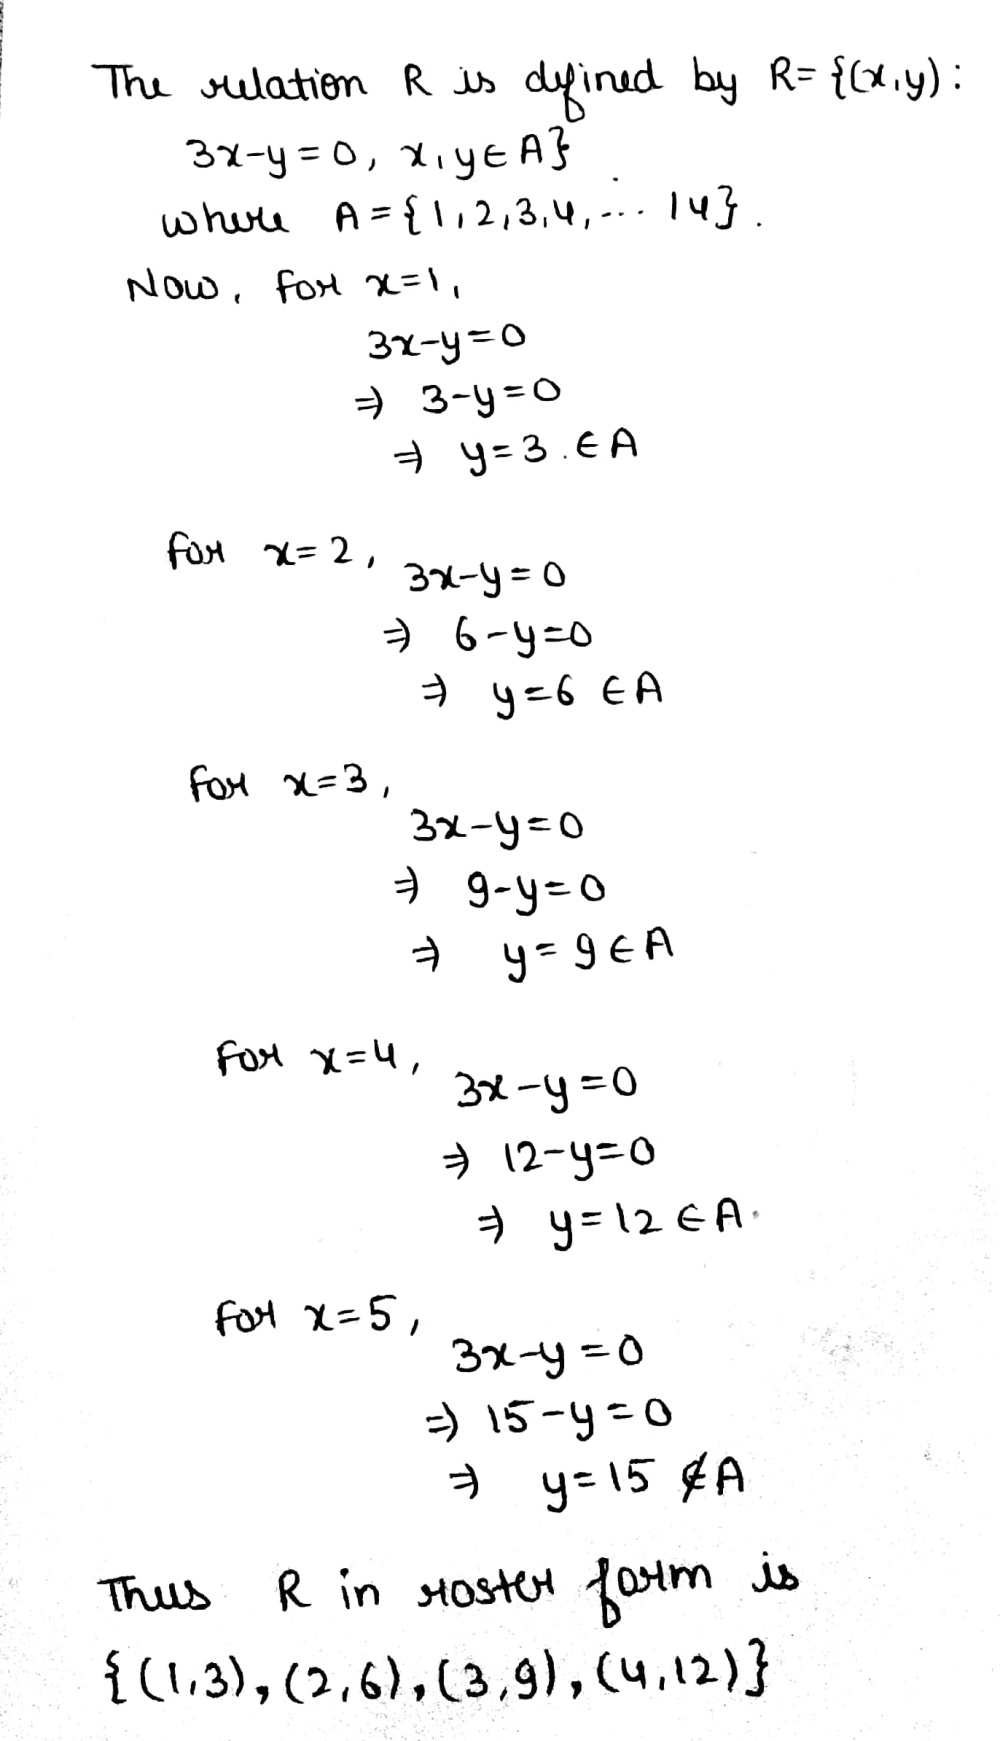 The relation R is defined by R= {(x,y) :
3x-y=0, x,y∈A}
where A={1,2,3,4,... 14}.
Now, for x=1,
3x-y=0
⇒ 3-y=0
⇒ y=3 ∈A
for x=2,
3x-y=0
⇒ 6-y=0
⇒ y=6 ∈A
for x=3,
3x-y=0
⇒ 9-y=0
⇒ y=9∈A
for x=4,
3x-y=0
⇒ 12-y=0
⇒ y=12 ∈A.
for x=5,
3x-y=0
⇒ 15-y=0
⇒ y=15 ∉A
Thus R in roster form is
{(1,3), (2,6), (3,9), (4,12)}